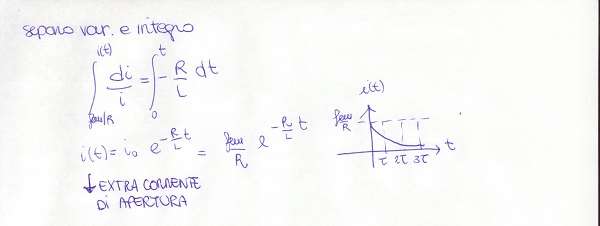 separo var. e integro
∫_{fem/R}^{i(t)} di/i = ∫_0^t - R/L dt
i(t) = i₀ e^{-R/L t} = fem/R e^{-R/L t}
↓ EXTRA CORRENTE
DI APERTURA
i(t)
fem/R
t
τ 2τ 3τ